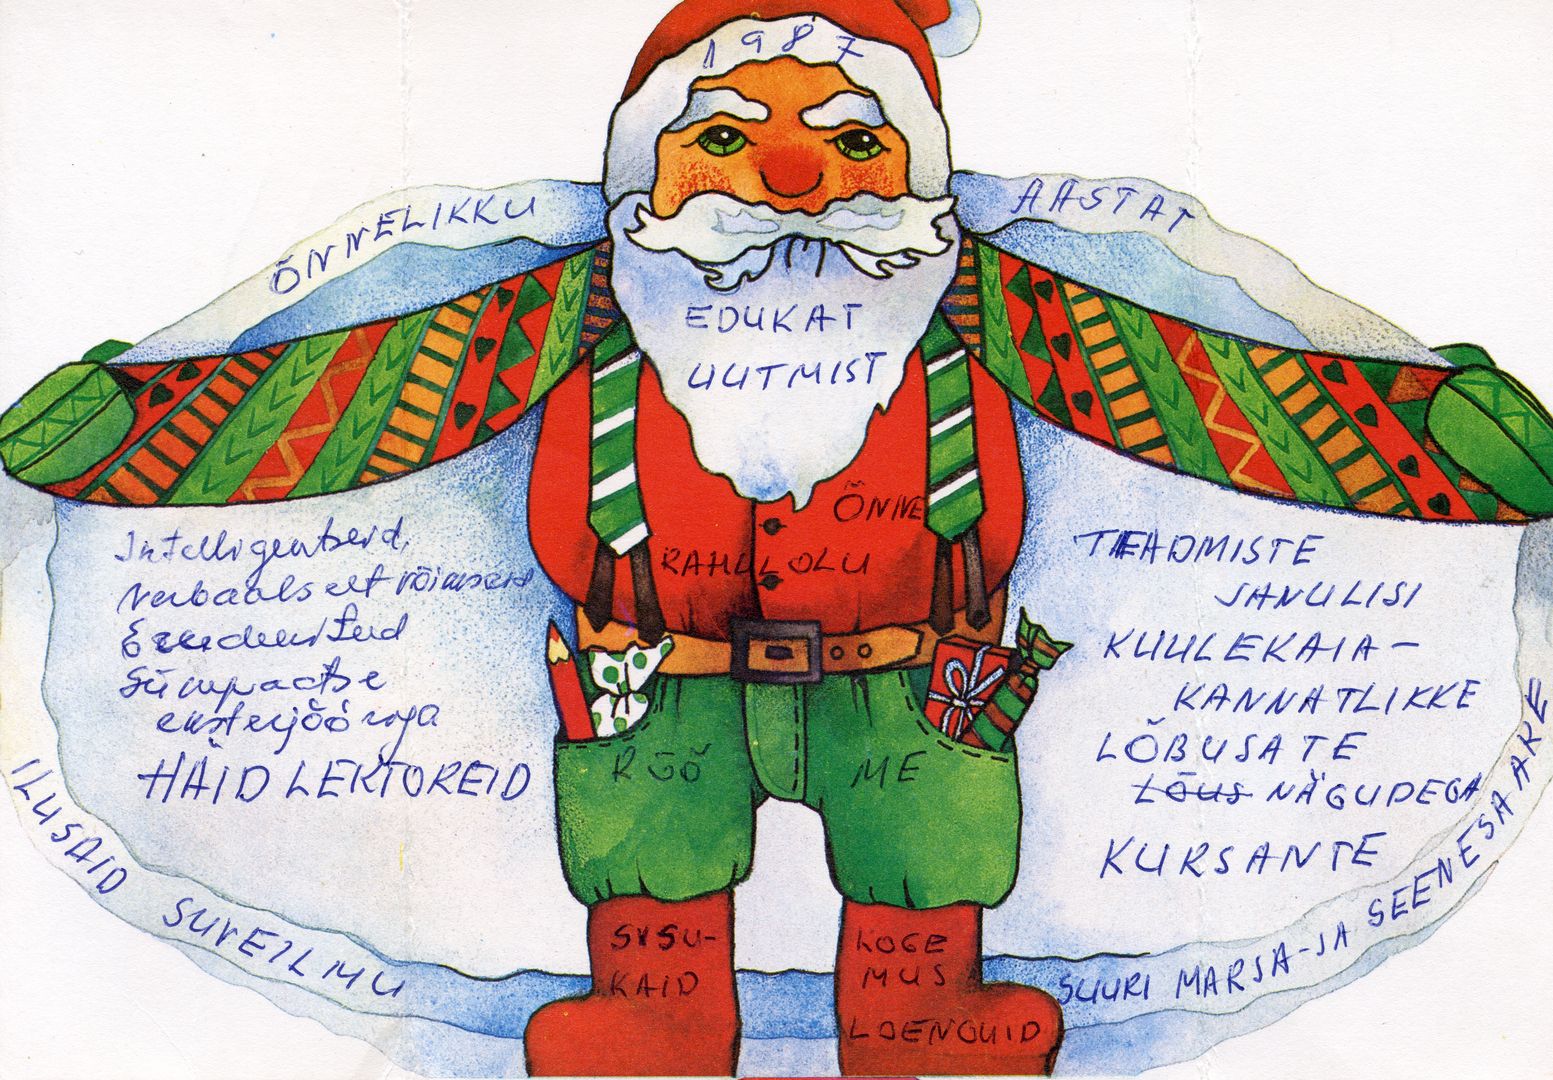 1987
ÕNNELIKKU AASTAT
EDUKAT
UUTMIST
ÕNNE
RAHULOLU
Intelligentseid,
Verbaalselt võimsaid
Erudeeritud
Sümpaatse
eksterjööriga
HÄID LEKTOREID
TEADMISTE
JANULISI
KUULEKAIA-
KANNATLIKKE
LÕBUSATE
LÕUS NÄGUDEGA
KURSANTE
RÕÕ ME
SISU-
KAID
KOGE
MUS
LOENGUID
ILUSAID SUVEILMU
SUURI MARJA-JA SEENESAAKE